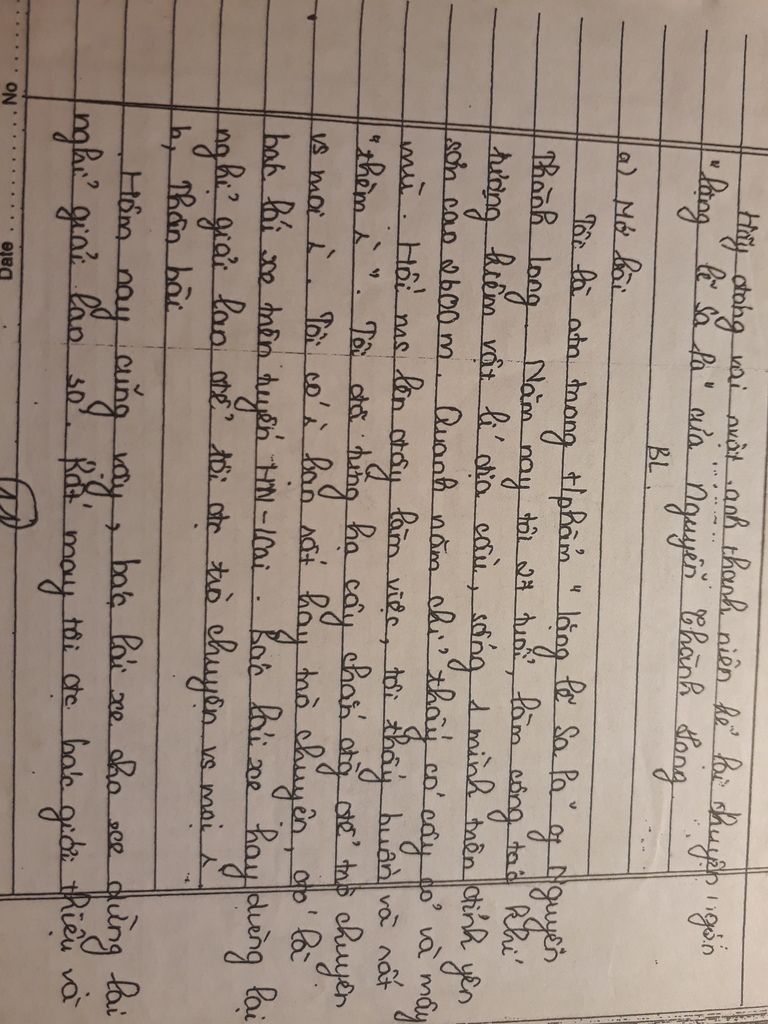 Hãy đóng vai nvật anh thanh niên kể lại chuyện
"lặng lẽ Sa Pa" của Nguyễn Thành Long
BL
a) Mở bài
Tôi là atn trong t/phẩm "lặng lẽ Sa Pa" of Nguyễn
Thành Long. Năm nay tôi 27 tuổi, làm công tác khí
tượng kiêm vật lí địa cầu, sống 1 mình trên đỉnh yên
sơn cao 2600m. Quanh năm chỉ thấy có cây cỏ và mây
mù. Hồi ms lên đây làm việc, tôi thấy buồn và rất
"thèm ". Tôi đã từng hạ cây chắn đg để trò chuyện
vs mọi . Tôi có bạn rất hay trò chuyện, đó là
bác lái xe trên tuyến HN-lCai. Bác lái xe hay dừng lại
nghỉ giải lao để tôi đc trò chuyện vs mọi
b, Thân bài
Hôm nay cũng vậy, bác lái xe cho xe dừng lại
nghỉ giải lao số. Rất may tôi đc bác giới thiệu và
No
Date